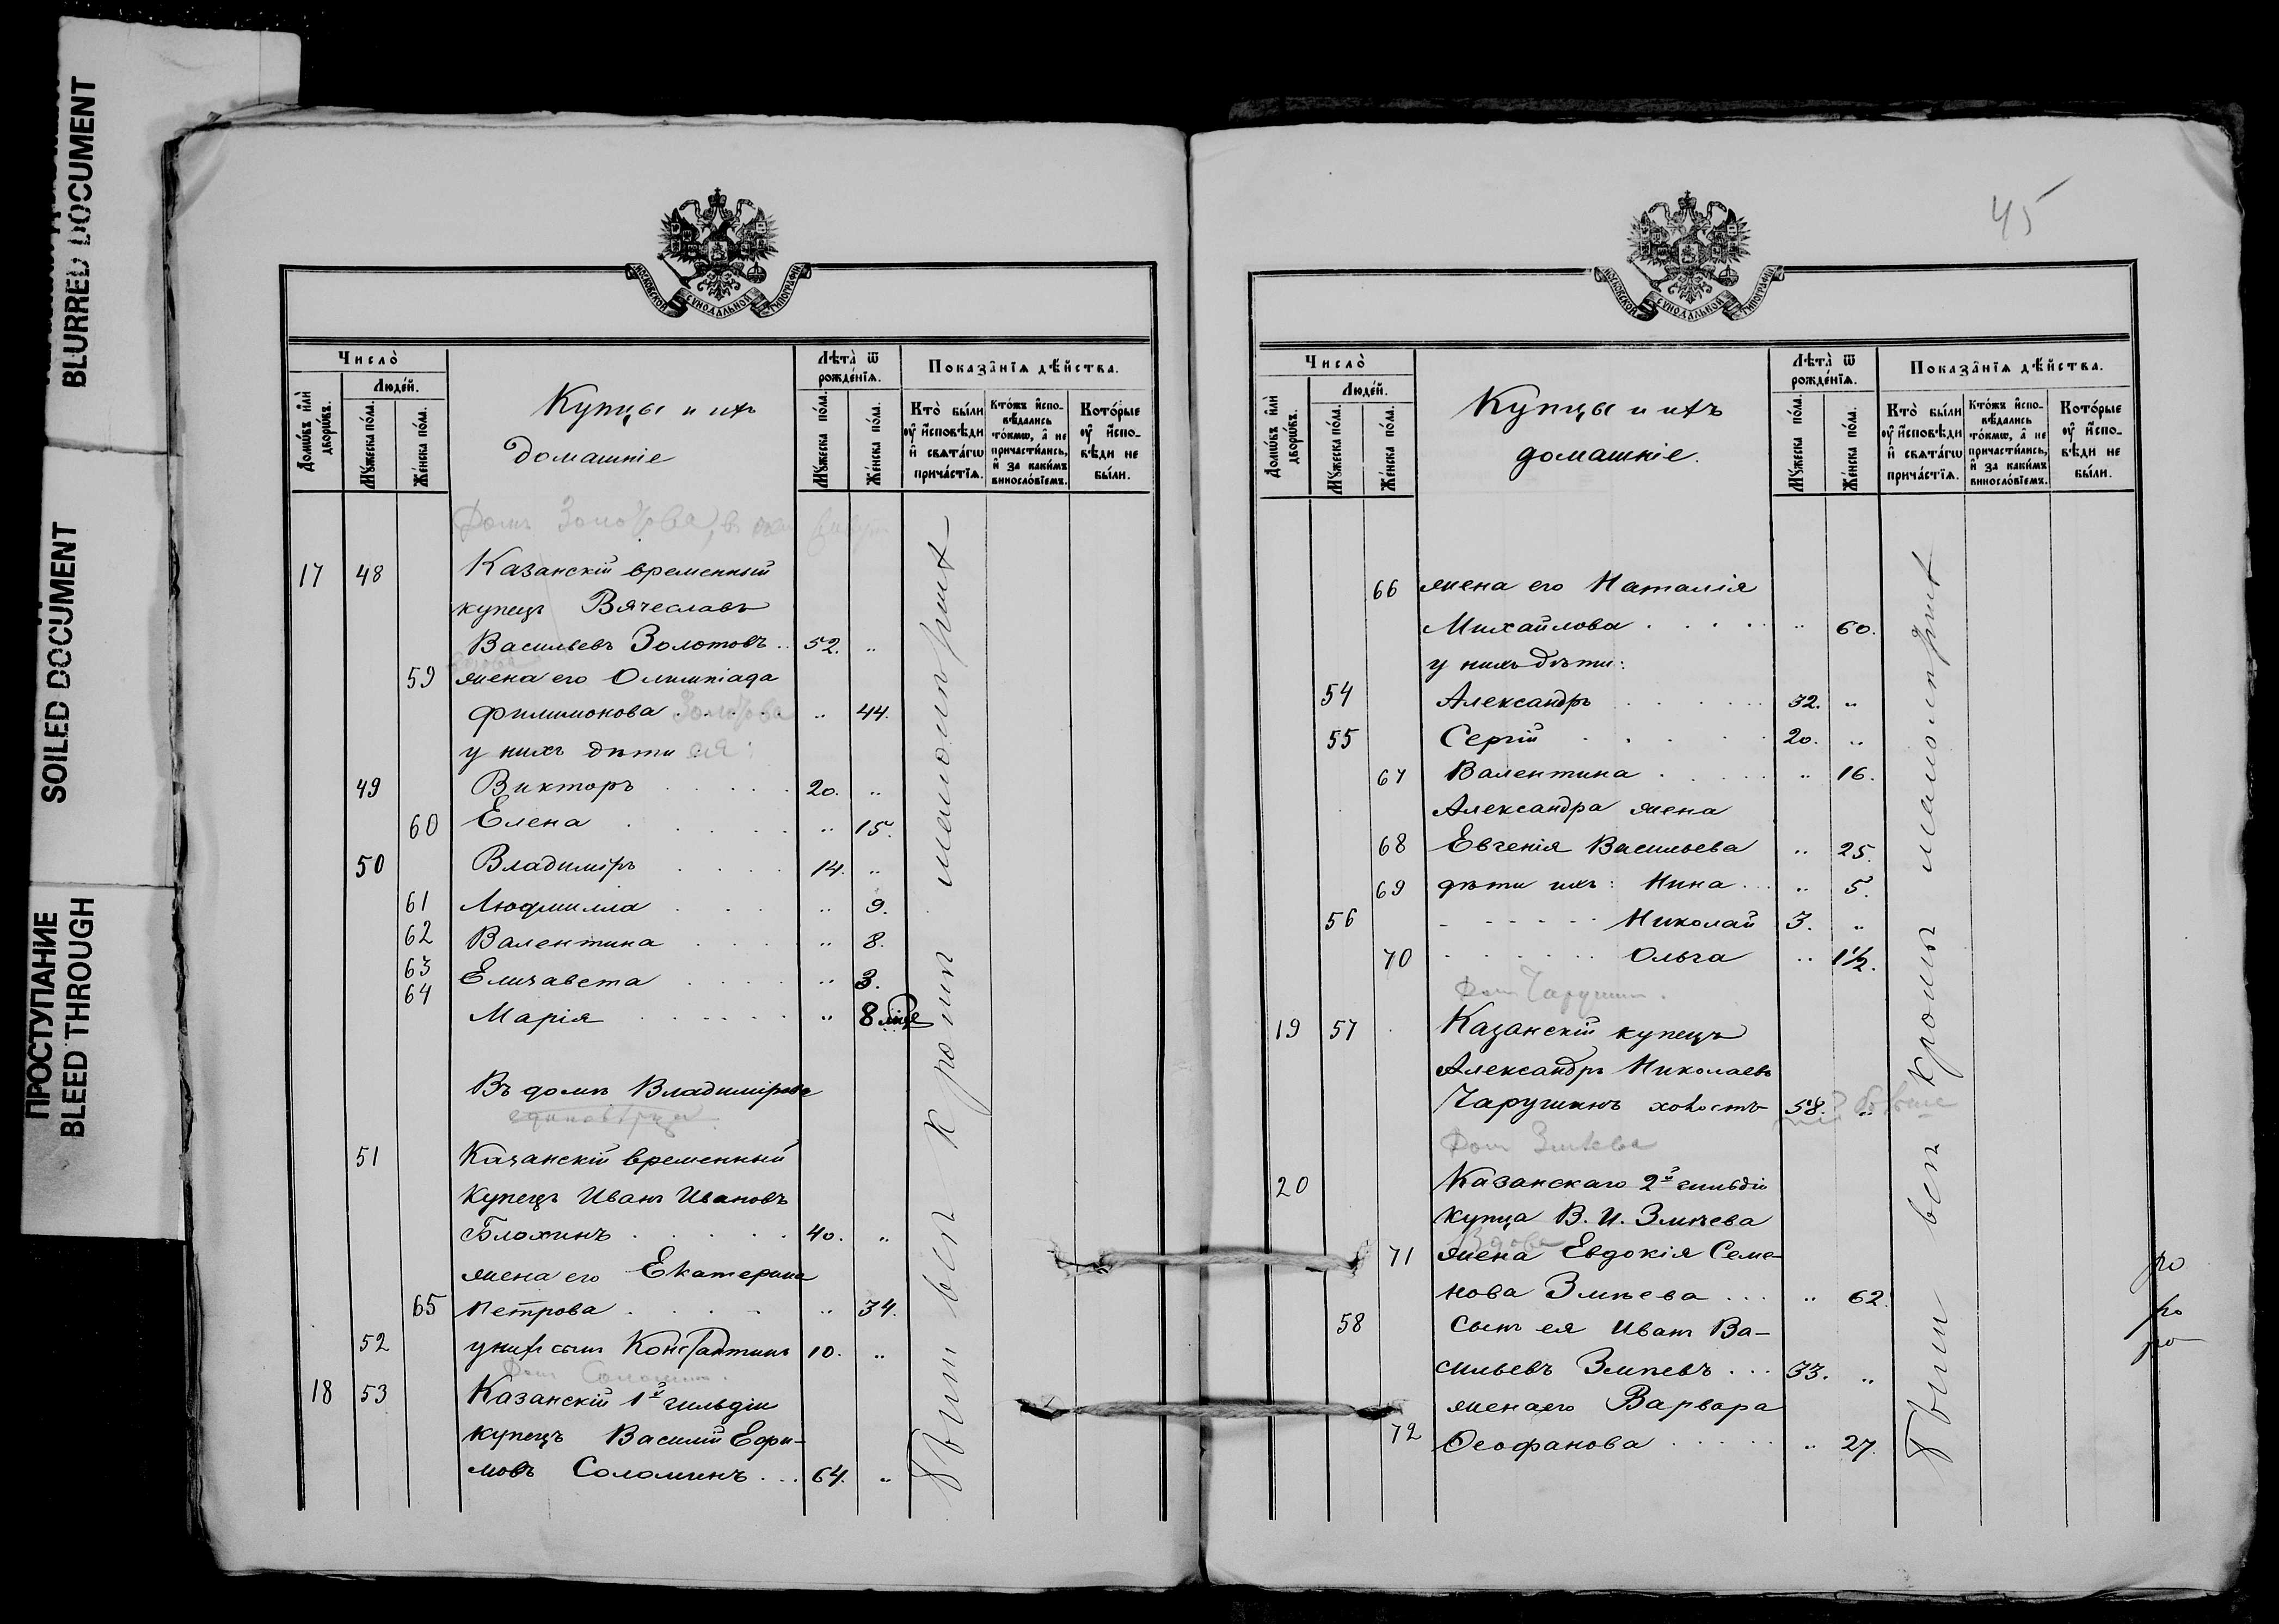 BLURRED DOCUMENT
SOILED DOCUMENT
ПРОСТУПАНИЕ
BLEED THROUGH
МОСКОВСКОЙ СУНОДАЛЬНОЙ ТИПОГРАФІИ
Число̀
Людей.
Домѡвъ или дворѡвъ.
Мꙋжеска пола.
Женска пола.
Купцы и ихъ
домашніе
Лѣта̀ ѿ рожденїѧ.
Мꙋжеска пола.
Женска пола.
Показанїѧ дѣйства.
Кто̀ были ᲂу҆ исповѣди и свѧтагѡ причастїѧ.
Ктожъ исповѣдались токмѡ, а не причастились, и за какимъ винословїемъ.
Которые ᲂу҆ исповѣди не были.
Домъ Золотова, въ
17 48 Казанскій временный
купецъ Вячеславъ
Васильевъ Золотовъ .. 52. "
вдова
59 жена его Олимпіада
Филимонова Золотова " 44.
у нихъ дѣти ея
49 Викторъ 20. "
60 Елена " 15.
50 Владиміръ 14. "
61 Людмилла " 9.
62 Валентина " 8.
63 Елизавета " 3.
64
Марія " 8 мѣс
Въ домѣ Владимірова
единовѣрца
51 Казанскій временный
купецъ Иванъ Ивановъ
Блохинъ 40. "
жена его Екатерина
65 Петрова " 34.
52 у нихъ сынъ Константинъ 10. "
Дом Соломин.
18 53 Казанскій 1й гильдіи
купецъ Василій Ефи-
мовъ Соломинъ ... 64. "
Были всѣ кромѣ малолѣтнихъ
45
МОСКОВСКОЙ СУНОДАЛЬНОЙ ТИПОГРАФІИ
Число̀
Людей.
Домѡвъ или дворѡвъ.
Мꙋжеска пола.
Женска пола.
Купцы и ихъ
домашніе.
Лѣта̀ ѿ рожденїѧ.
Мꙋжеска пола.
Женска пола.
Показанїѧ дѣйства.
Кто̀ были ᲂу҆ исповѣди и свѧтагѡ причастїѧ.
Ктожъ исповѣдались токмѡ, а не причастились, и за какимъ винословїемъ.
Которые ᲂу҆ исповѣди не были.
66 жена его Наталія
Михайлова . . . . " 60.
у нихъ дѣти:
54 Александръ 32. "
55 Сергій 20. "
67 Валентина " 16.
Александра жена
68 Евгенія Васильева " 25.
69 дѣти ихъ: Нина " 5.
56 Николай 3. "
70 Ольга " 1½.
Дом Чарушин.
19 57 Казанскій купецъ
Александръ Николаевъ
Чарушинъ холостъ 58. "
Дом Змѣева
20 Казанскаго 2й гильдіи
купца В. И. Змѣева
Вдова
71 жена Евдокія Семе-
нова Змѣева ... " 62.
58 Сынъ ея Иванъ Ва-
сильевъ Змѣевъ ... 33. "
жена его Варвара
72 Ѳеофанова " 27.
Были всѣ кромѣ малолѣтнихъ